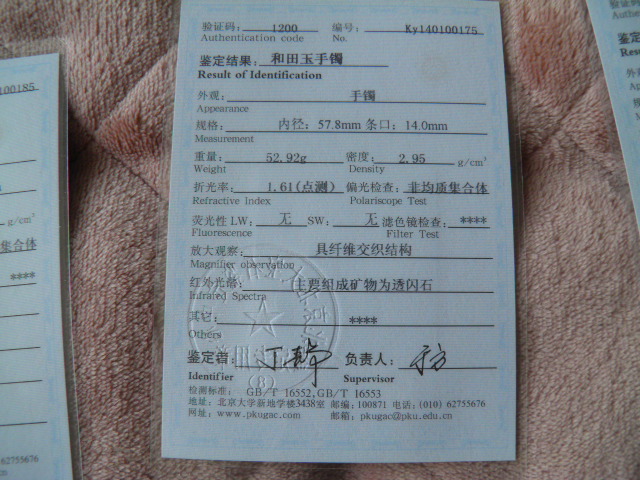 验证码： 1200 编号： Ky140100175
Authentication code No.
鉴定结果：和田玉手镯
Result of Identification
外观： 手镯
Appearance
规格： 内径：57.8mm 条口：14.0mm
Measurement
重量： 52.92g 密度： 2.95 g/cm³
Weight Density
折光率： 1.61(点测) 偏光检查：非均质集合体
Refractive Index Polariscope Test
荧光性 LW： 无 SW： 无 滤色镜检查： ****
Fluorescence Filter Test
放大观察： 具纤维交织结构
Magnifier observation
红外光谱： 主要组成矿物为透闪石
Infrared Spectra
其它： ****
Others
鉴定者： 负责人：
Identifier Supervisor
检测标准： GB/T 16552,GB/T 16553
地址：北京大学新地学楼3438室 邮编：100871 电话：(010) 62755676
网址：www.pkugac.com 邮箱：pkugac@pku.edu.cn
00185
g/cm³
集合体
****
62755676